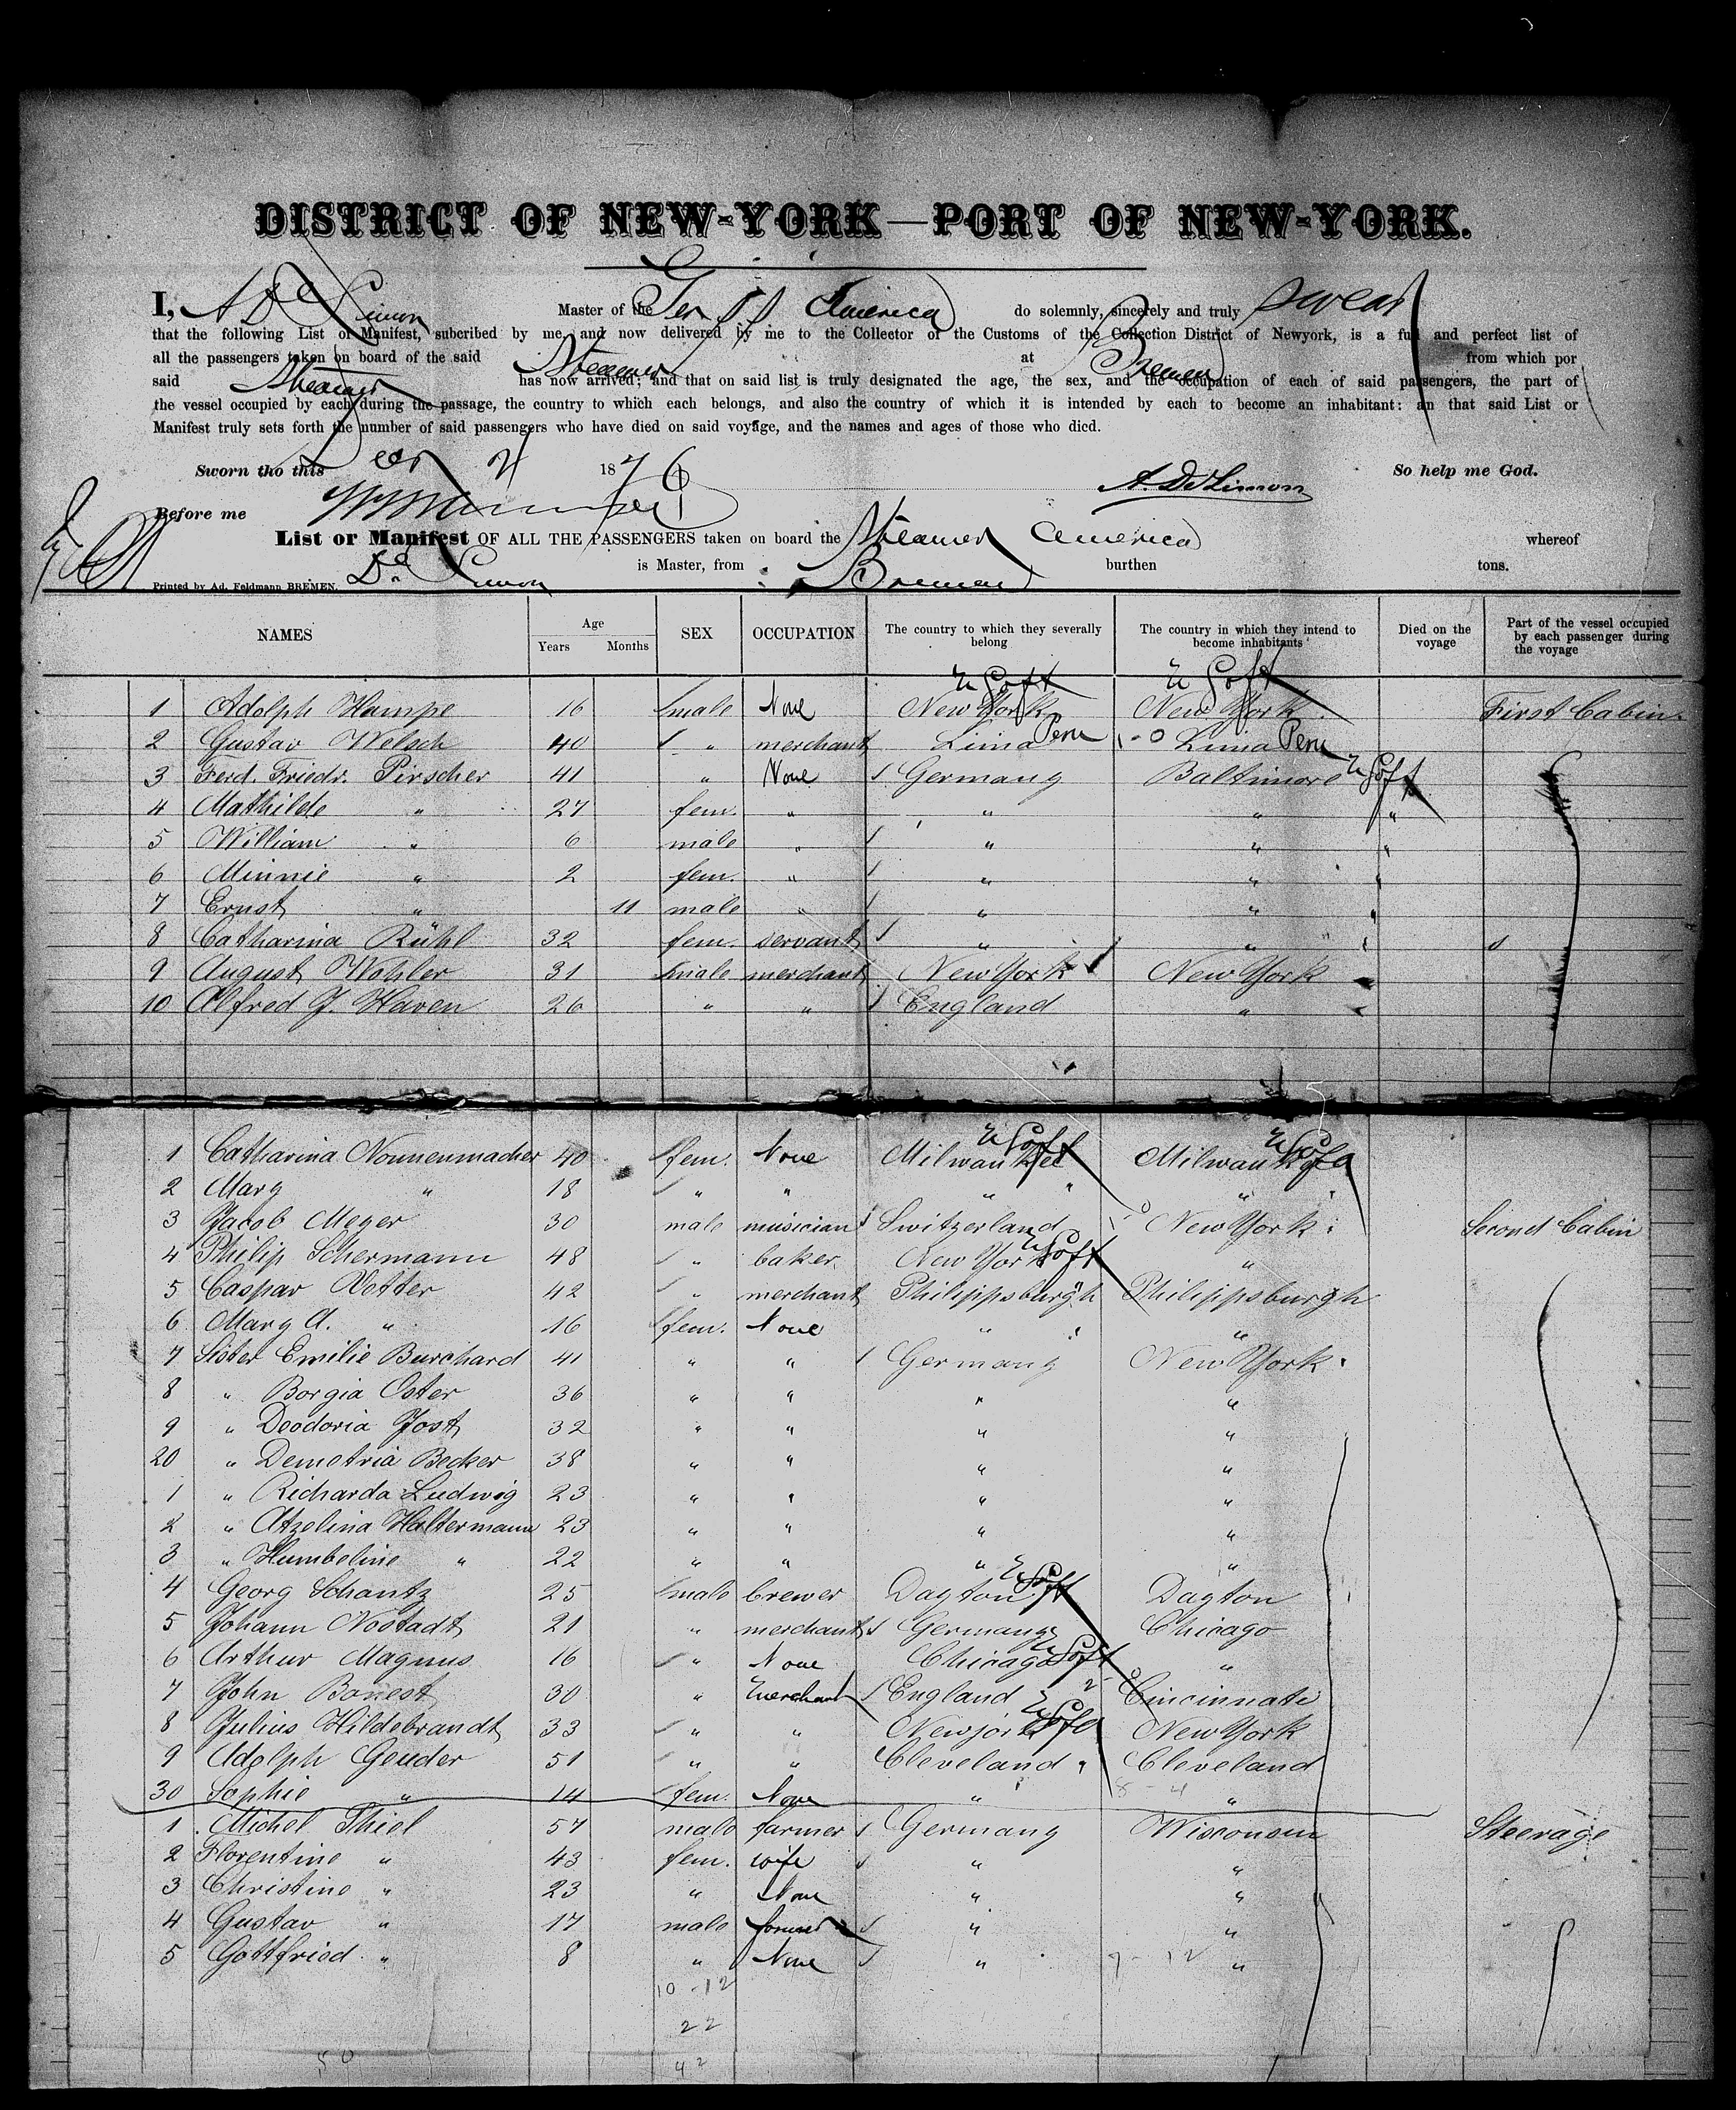 DISTRICT OF NEW-YORK—PORT OF NEW-YORK.
I, A De Limon Master of the Ger SS America do solemnly, sincerely and truly swear
that the following List or Manifest, subcribed by me, and now delivered by me to the Collector of the Customs of the Collection District of Newyork, is a full and perfect list of
all the passengers taken on board of the said Steamer at Bremen from which por
said Steamer has now arrived; and that on said list is truly designated the age, the sex, and the occupation of each of said passengers, the part of
the vessel occupied by each during the passage, the country to which each belongs, and also the country of which it is intended by each to become an inhabitant: an that said List or
Manifest truly sets forth the number of said passengers who have died on said voyage, and the names and ages of those who died.
Sworn tho this Dec 4 1876 A. De Limon So help me God.
Before me
List or Manifest OF ALL THE PASSENGERS taken on board the Steamer America whereof
De Limon is Master, from Bremen burthen tons.
Printed by Ad. Feldmann BREMEN.
NAMES Age Years Months SEX OCCUPATION The country to which they severally belong The country in which they intend to become inhabitants Died on the voyage Part of the vessel occupied by each passenger during the voyage
U S of A U S of A
1 Adolph Hampe 16 male None New York New York First Cabin
2 Gustav Welsch 40 " merchant Lima Peru Lima Peru
3 Ferd. Friedr. Pirscher 41 " None Germany Baltimore U S of A
4 Mathilde " 27 fem. " " " "
5 William " 6 male " " " "
6 Minnie " 2 fem. " " " "
7 Ernst " 11 male " " " "
8 Catharina Rühl 32 fem. servant " "
9 August Wohler 31 male merchant New York New York
10 Alfred J. Haven 26 " " England "
U S of A U S of A
1 Catharina Nonnenmacher 40 fem. None Milwaukee Milwaukee
2 Mary " 18 " " " "
3 Jacob Meyer 30 male musician Switzerland New York Second Cabin
4 Philip Schermann 48 " baker New York U S of A "
5 Caspar Vetter 42 " merchant Philippsburgh Philippsburgh
6 Mary A. " 16 fem. None " "
7 Sister Emilie Burchard 41 " " Germany New York
8 " Borgia Oster 36 " " " "
9 " Deodoria Jost 32 " " " "
20 " Demetria Becker 38 " " " "
1 " Richarda Ludwig 23 " " " "
2 " Atzelina Haltermann 23 " " " "
3 " Humbeline " 22 " " " "
4 Georg Schantz 25 male brewer Dayton U S of A Dayton
5 Johann Nostadt 21 " merchant Germany Chicago
6 Arthur Magnus 16 " None Chicago U S of A "
7 John Bonest 30 " Merchant England Cincinnati
8 Julius Hildebrandt 33 " " Newjork U S of A New York
9 Adolph Geuder 51 " " Cleveland " Cleveland
30 Sophie " 14 fem. None " "
1 Michel Thiel 57 male farmer Germany Wisconsin Steerage
2 Florentine " 43 fem. wife " "
3 Christine " 23 " None " "
4 Gustav " 17 male farmer " "
5 Gottfried " 8 " None " 7-12 "
10-12
22
42